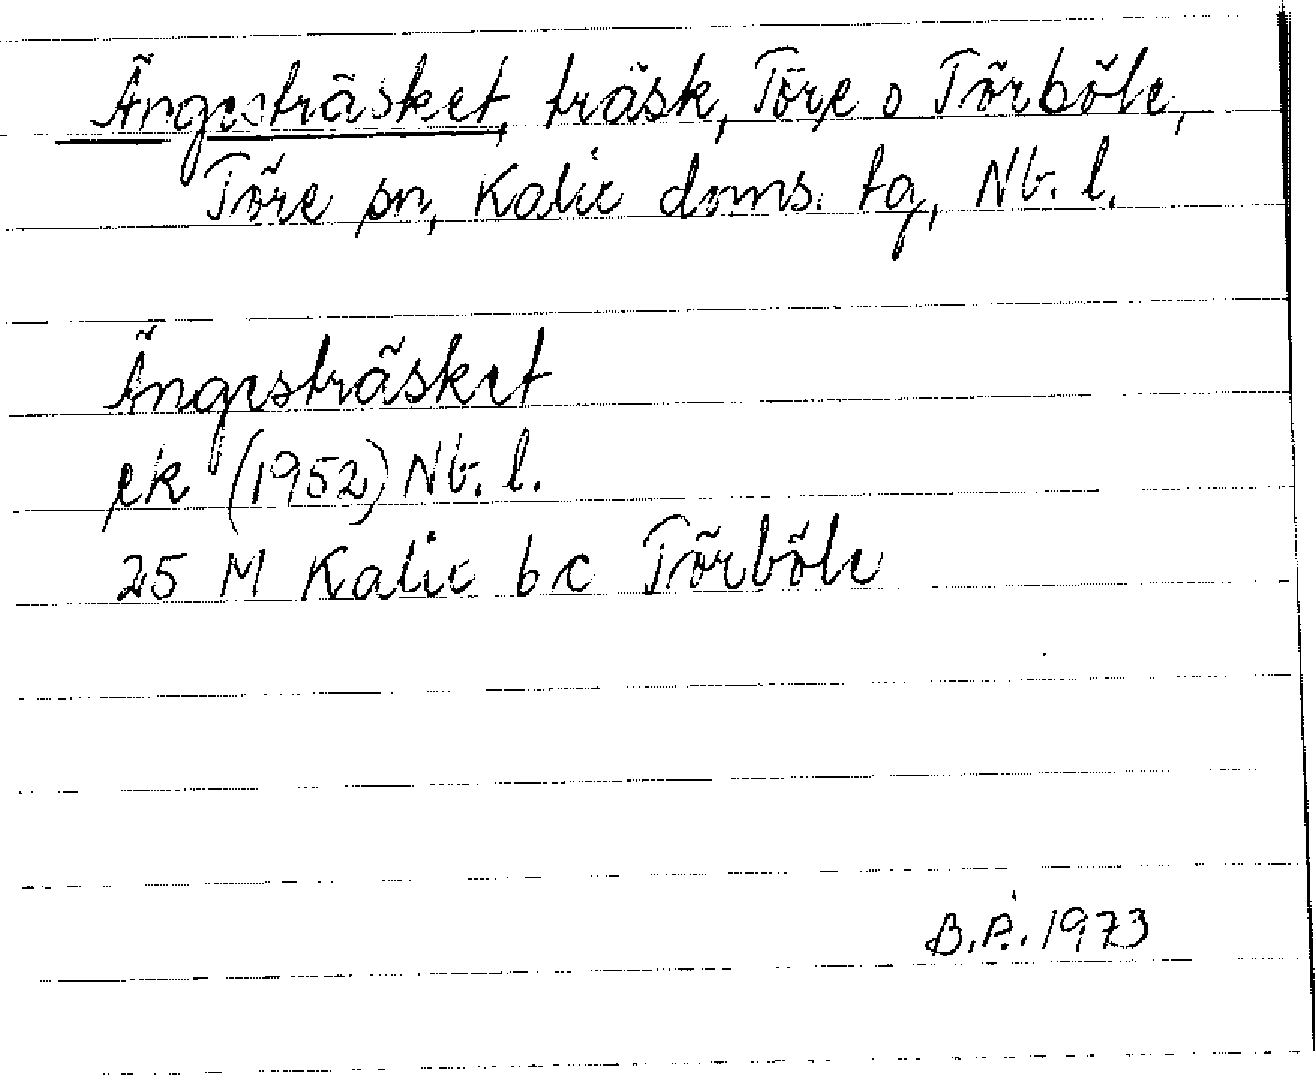 Ängesträsket, träsk, Töre o Törböle,
Töre sn, Kalix doms. tg, Nb. l.
Ängesträsket
ek (1952) Nb. l.
25 M Kalix bc Törböle
B.P. 1973